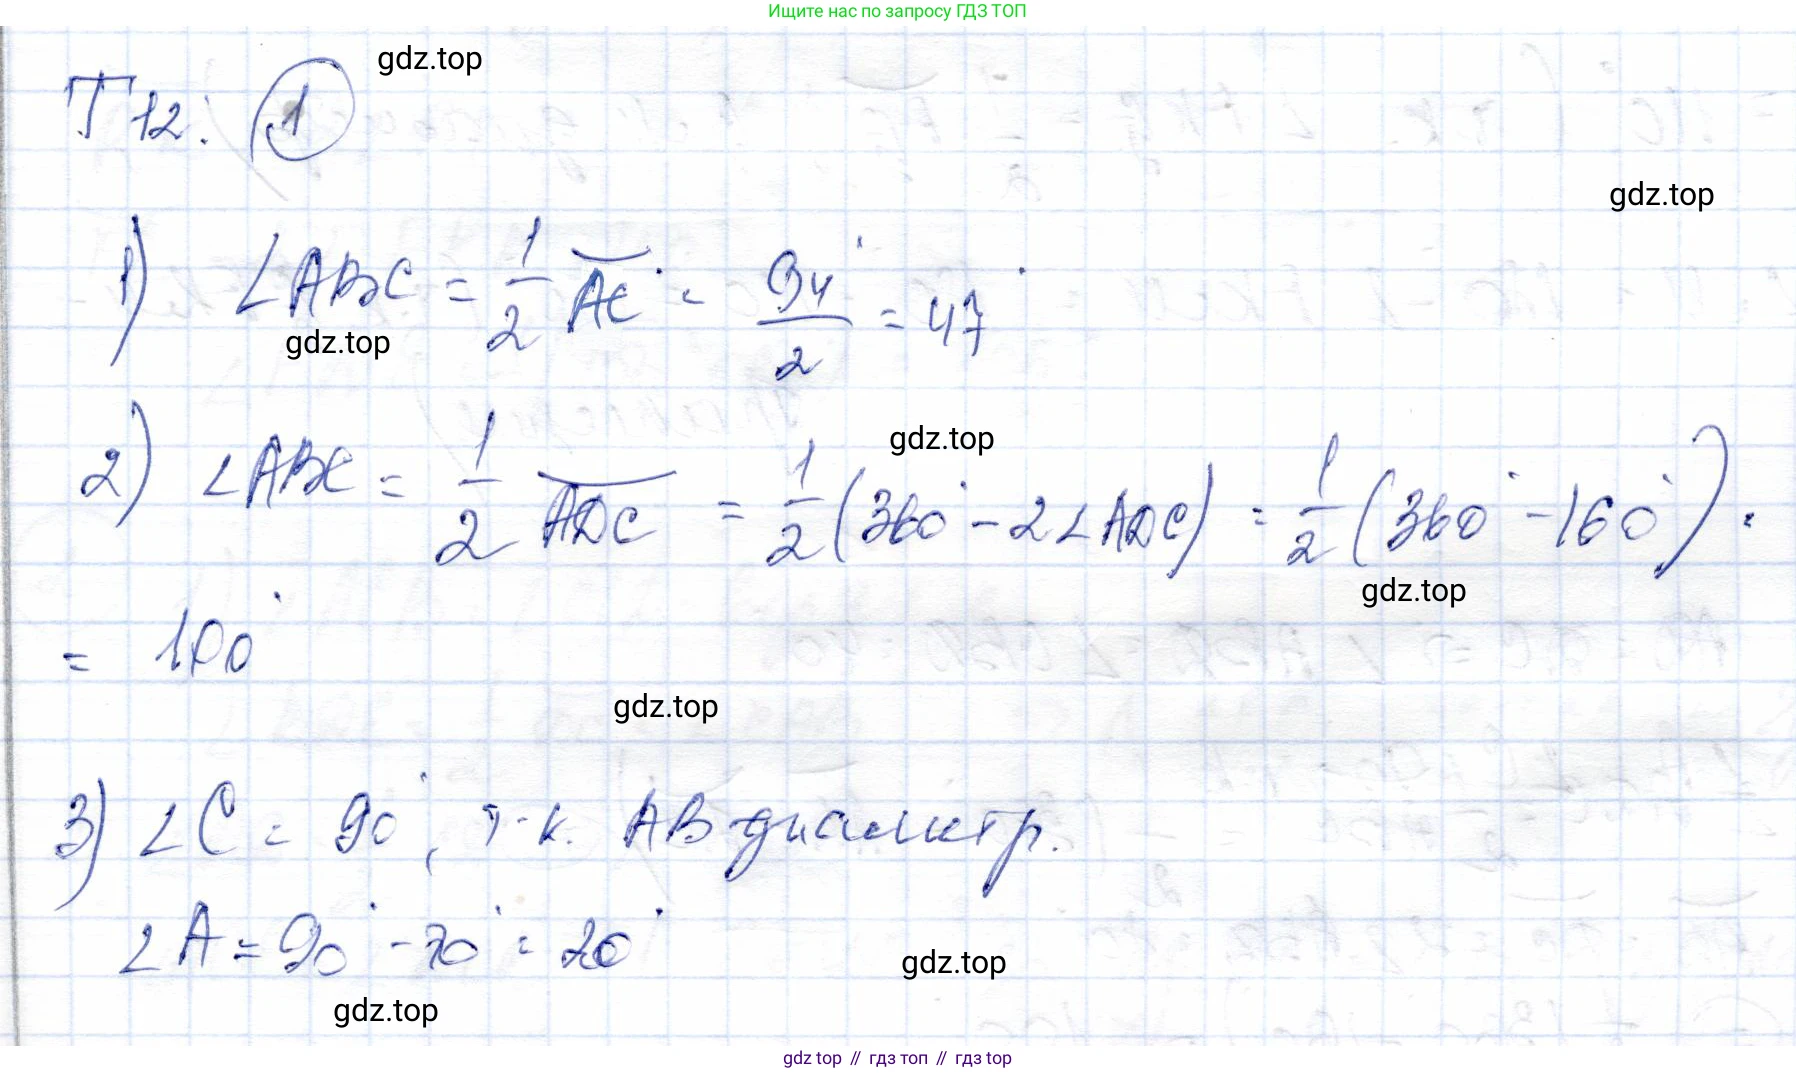 Ищите нас по запросу ГДЗ ТОП
gdz.top
Т12. 1
gdz.top
1) ∠ABC = 1/2 AC = 94°/2 = 47°
gdz.top
gdz.top
2) ∠ABC = 1/2 ADC = 1/2 (360° - 2∠ADC) = 1/2 (360° - 160°) =
gdz.top
= 100°
gdz.top
3) ∠C = 90°, т.к. AB диаметр.
∠A = 90° - 70° = 20°
gdz.top
gdz.top
gdz top // гдз топ // гдз top